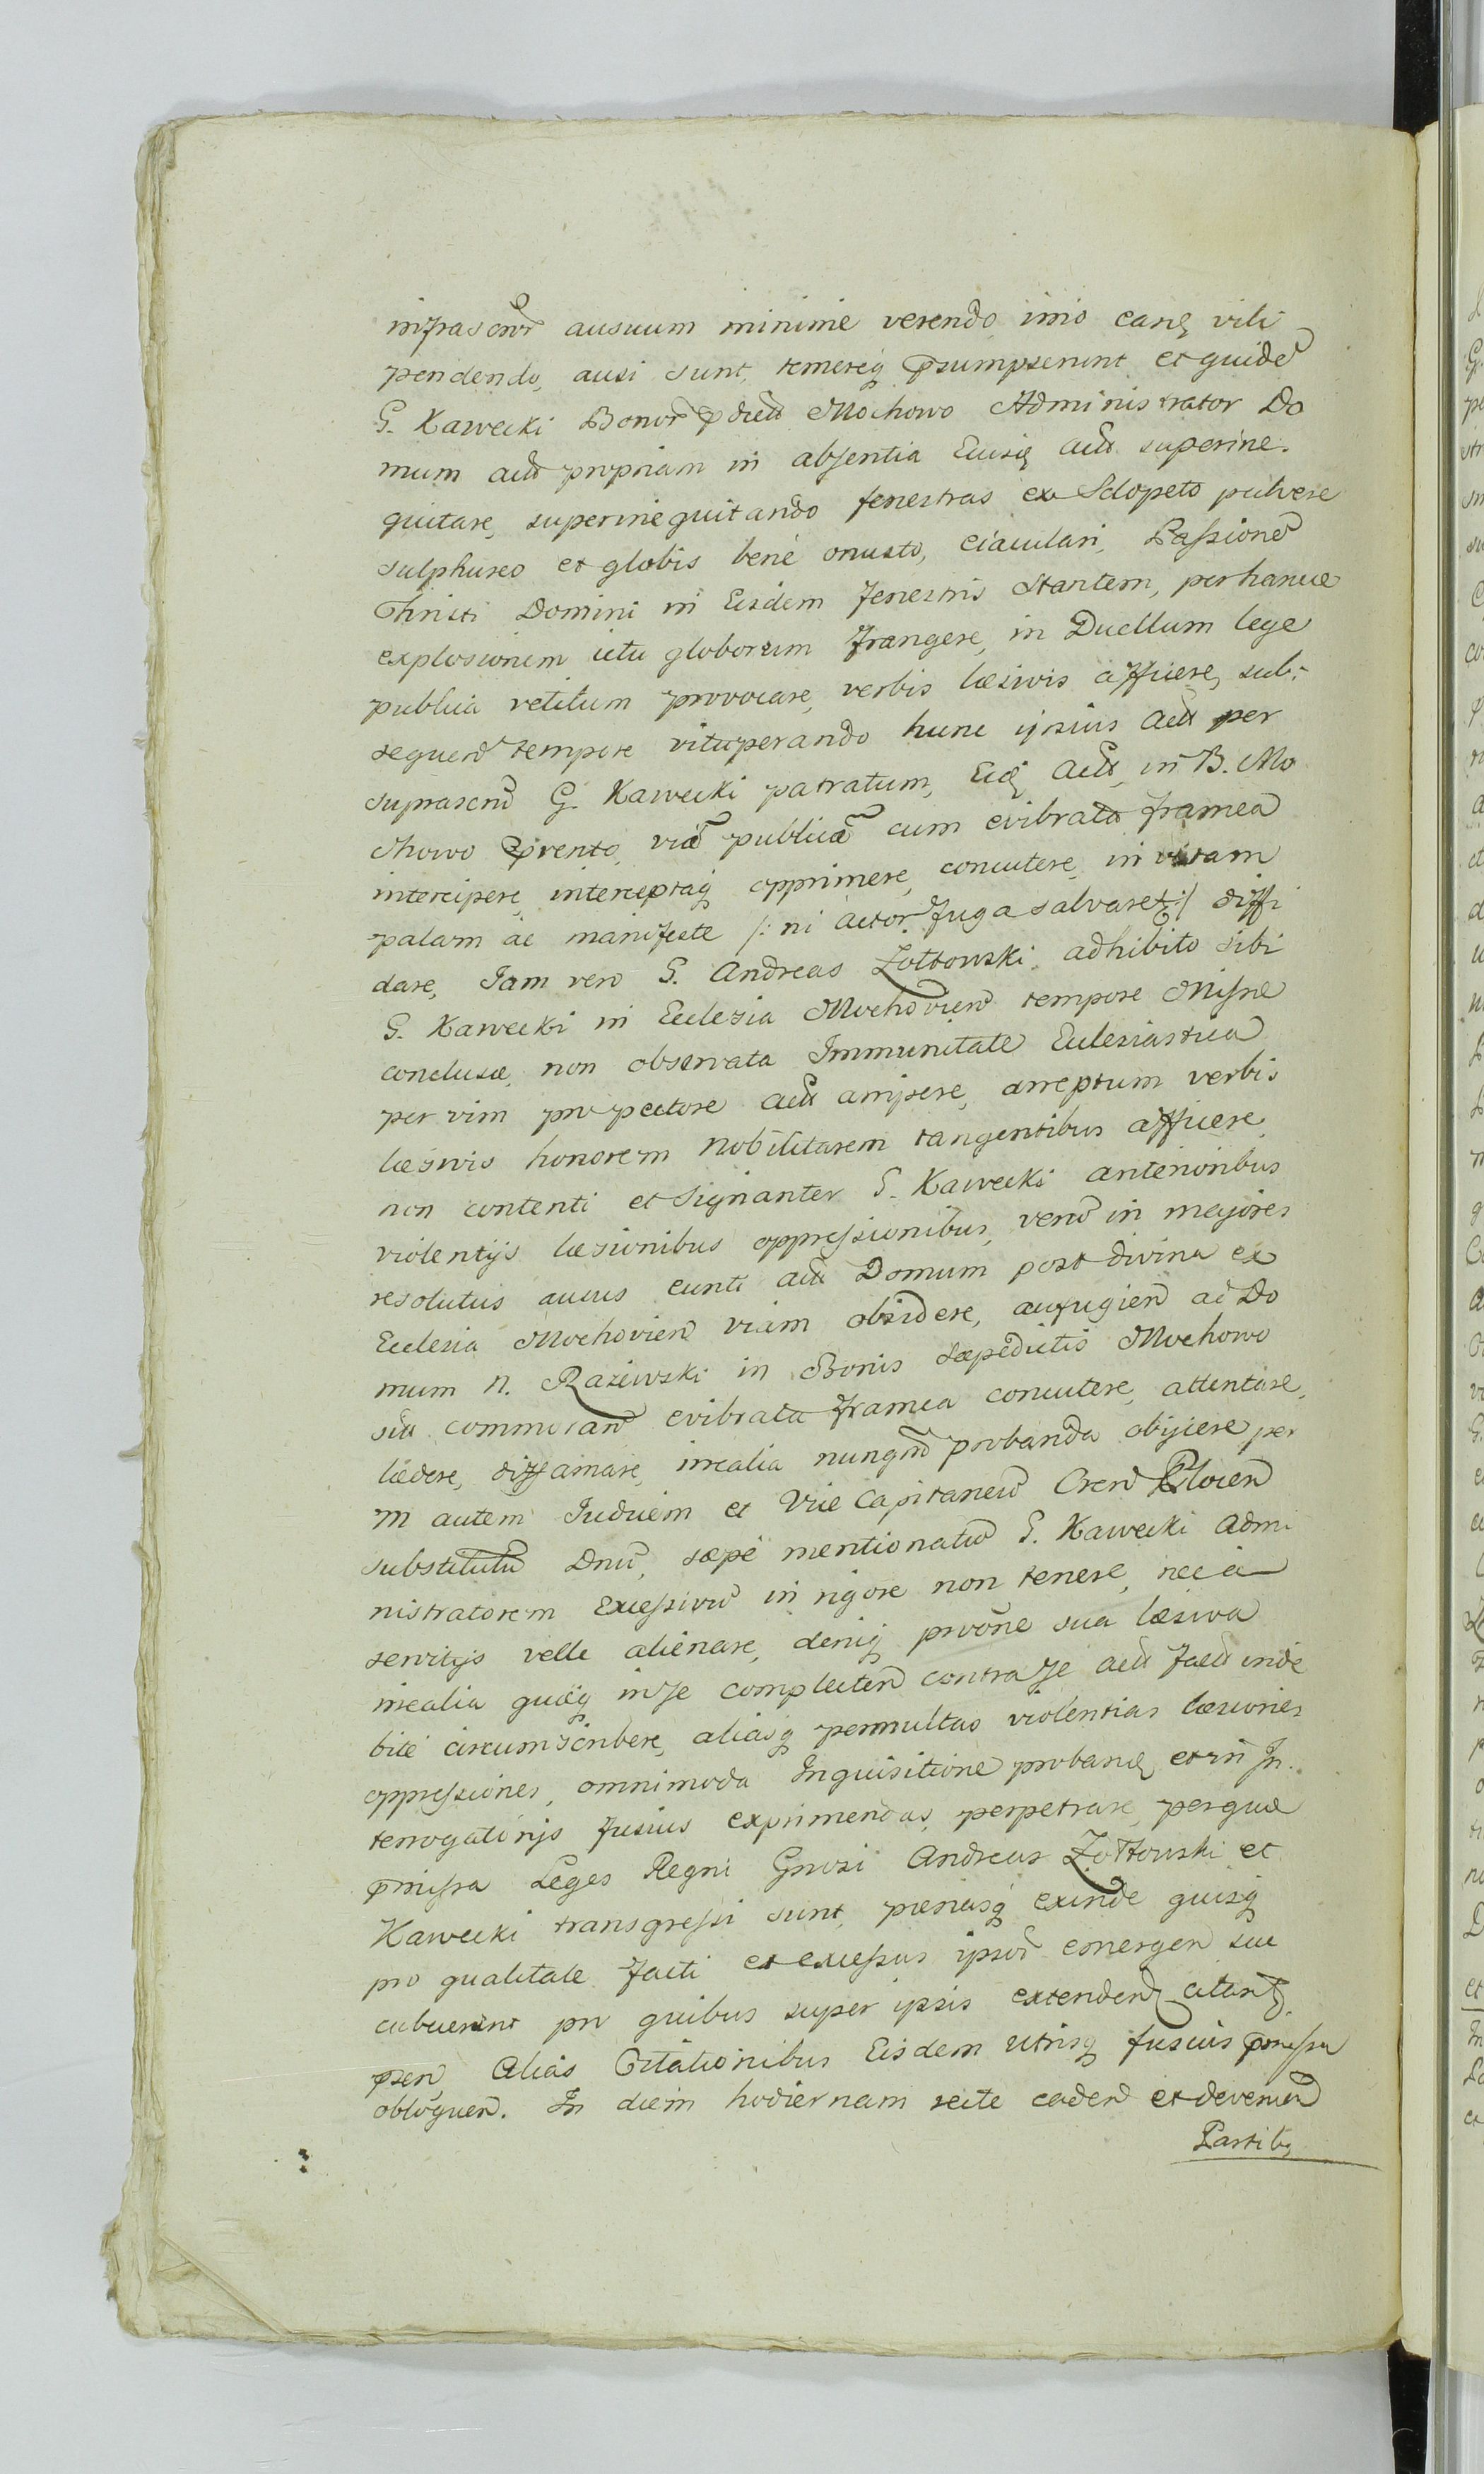 infrascrōr ausuum minime verendo imo easq̨ vili
pendendo, ausi sunt, temereq̨ p̄sumpserunt et quidē
G. Kawecki Bonor̄ p̄dict̄ Mochowo Administrator Do
mum act̄ propriam in absentia Eiusq̨ act̄ superine-
quitare, superinequitando fenestras ex Sclopeto pulvere
sulphureo et globis bené onusto, eiaculari, Passionē
Christi Domini in Eisdem fenestris Stantem, per hancce
explosionem ictu globorum frangere, in Duellum lege
publica vetitum provocare, verbis læsivis afficere, sub-
sequen̄ tempore vituperando hunc ipsius act̄ per
suprascrip̄ G. Kawecki patratum, Eidq̨ Act̄, in B. Mo
chowo p̄vento, viā publicā cum evibrata framea
intercipere, interceptaq̨ opprimere, concutere, in vitam
palam ac manifeste /: ni actor fuga salvaret :/ diffi
dare, Jam vero G. Andreas Zołtowski, adhibito sibi
G. Kawecki in Ecclesia Mochovien̄ tempore Missæ
conclusæ, non observata Immunitate Ecclesiastica
per vim pro pectore act̄ arripere, arreptum verbis
læsivis honorem nobilitarem tangentibus afficere,
non contenti et signanter G. Kawecki anterioribus
violentijs læsionibus oppressionibus, verū in majores
resolutus ausus eunti act̄ Domum post divina ex
Ecclesia Mochovien̄ viam obsidere, aufugien̄ ad Do
mum N. Rażewski in Bonis sæpedictis Mochowo
sitt commoran̄ evibrata framea concutere, attentare,
lædere, diffamare, irrealia nunqm̄ probanda objicere per
M autem Judicem et Vice Capitaneū Cren̄ Plocen̄
substitutū Dnū, sæpé mentionatū G. Kawecki Admi
nistratorem Excessivū in rigore non tenere, nec à
servitijs velle alienare, deniq̨ prōone sua læsiva
irrealia quæq̨ in se complecten̄ contra se act̄ fact̄ inde
bité circumscribere, aliasq̨ permultas violentias læsiones
oppressiones, omnimoda Inquisitione probanq̨ et in In-
terrogatorijs fusius exprimendas, perpetrare, per quæ
p̄missa Leges Regni Gnrosi Andreas Zołtowski et
Kawecki transgressi sunt, pœnasq̨ exinde quisq̨
pro qualitate facti et excessus ipsor̄ emergen̄ suc
cubuerint pro quibus super ipsis extendenq̨ citant̄
p̄sen̄ Alias Citationibus Eisdem utrisq̨ fusius p̄missa
obloquen̄. In diem hodiernam recte caden̄ et devenien̄
Partibq̨